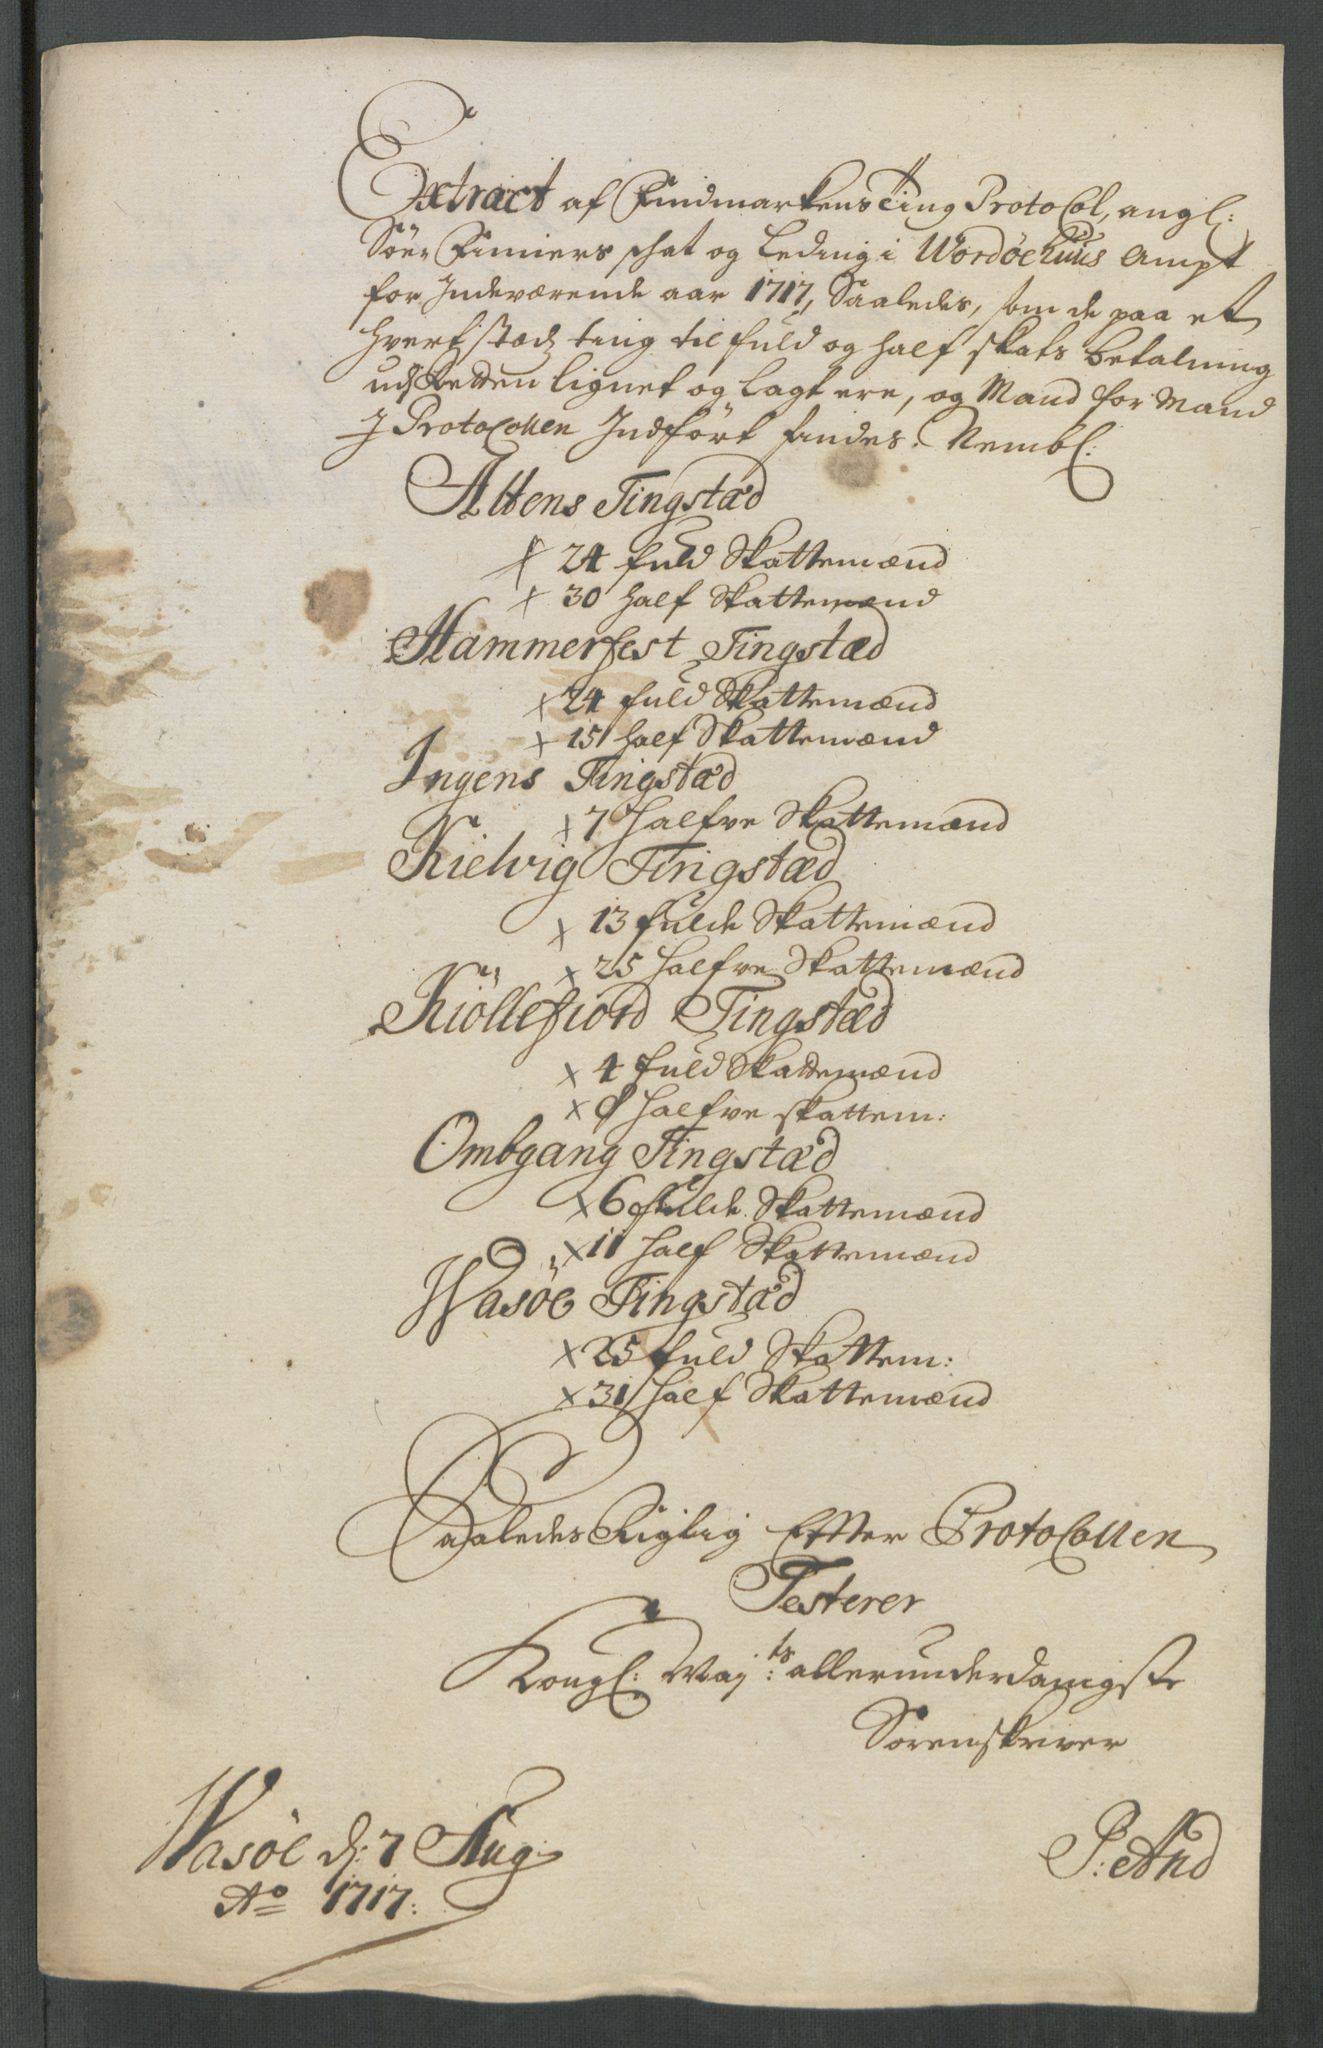 Extract af Findmarkens Ting Protocol, angl:
Söe Finners schat og Leding i Wordöehuus Ampt
for Indeværende aar 1717, Saaledes, som de paa et
hvert stæds ting til fuld og half skats betalning
udj Retten lignet og lagt ere, og Mand for Mand
J Protocollen Indfört findes. Nembl:
Altens Tingstæd
x 24 fuld Skattemænd
x 30 half Skattemænd
Hammerfest Tingstæd
x 24 fuld Skattemænd
x 15 half Skattemænd
Ingens Tingstæd
x 7 Halfve Skattemænd
Kielvig Tingstæd
x 13 fulde Skattemænd
x 25 Halfve Skattemænd
Kiöllefiord Tingstæd
x 4 fuld Skattemænd
x 8 Halfve skattem:
Ombgang Tingstæd
x 6 fulde Skattemænd
x 11 half Skattemænd
Wasöe Tingstæd
x 25 fuld Skattem:
x 31 half Skattemænd
Saaledes Rigtig Efter Protocollen
Testerer
Kongl: Maj:ts allerunderdanigste
Sorenskriver
Wasöe d: 7 Aug:
Ao 1717:
P: And